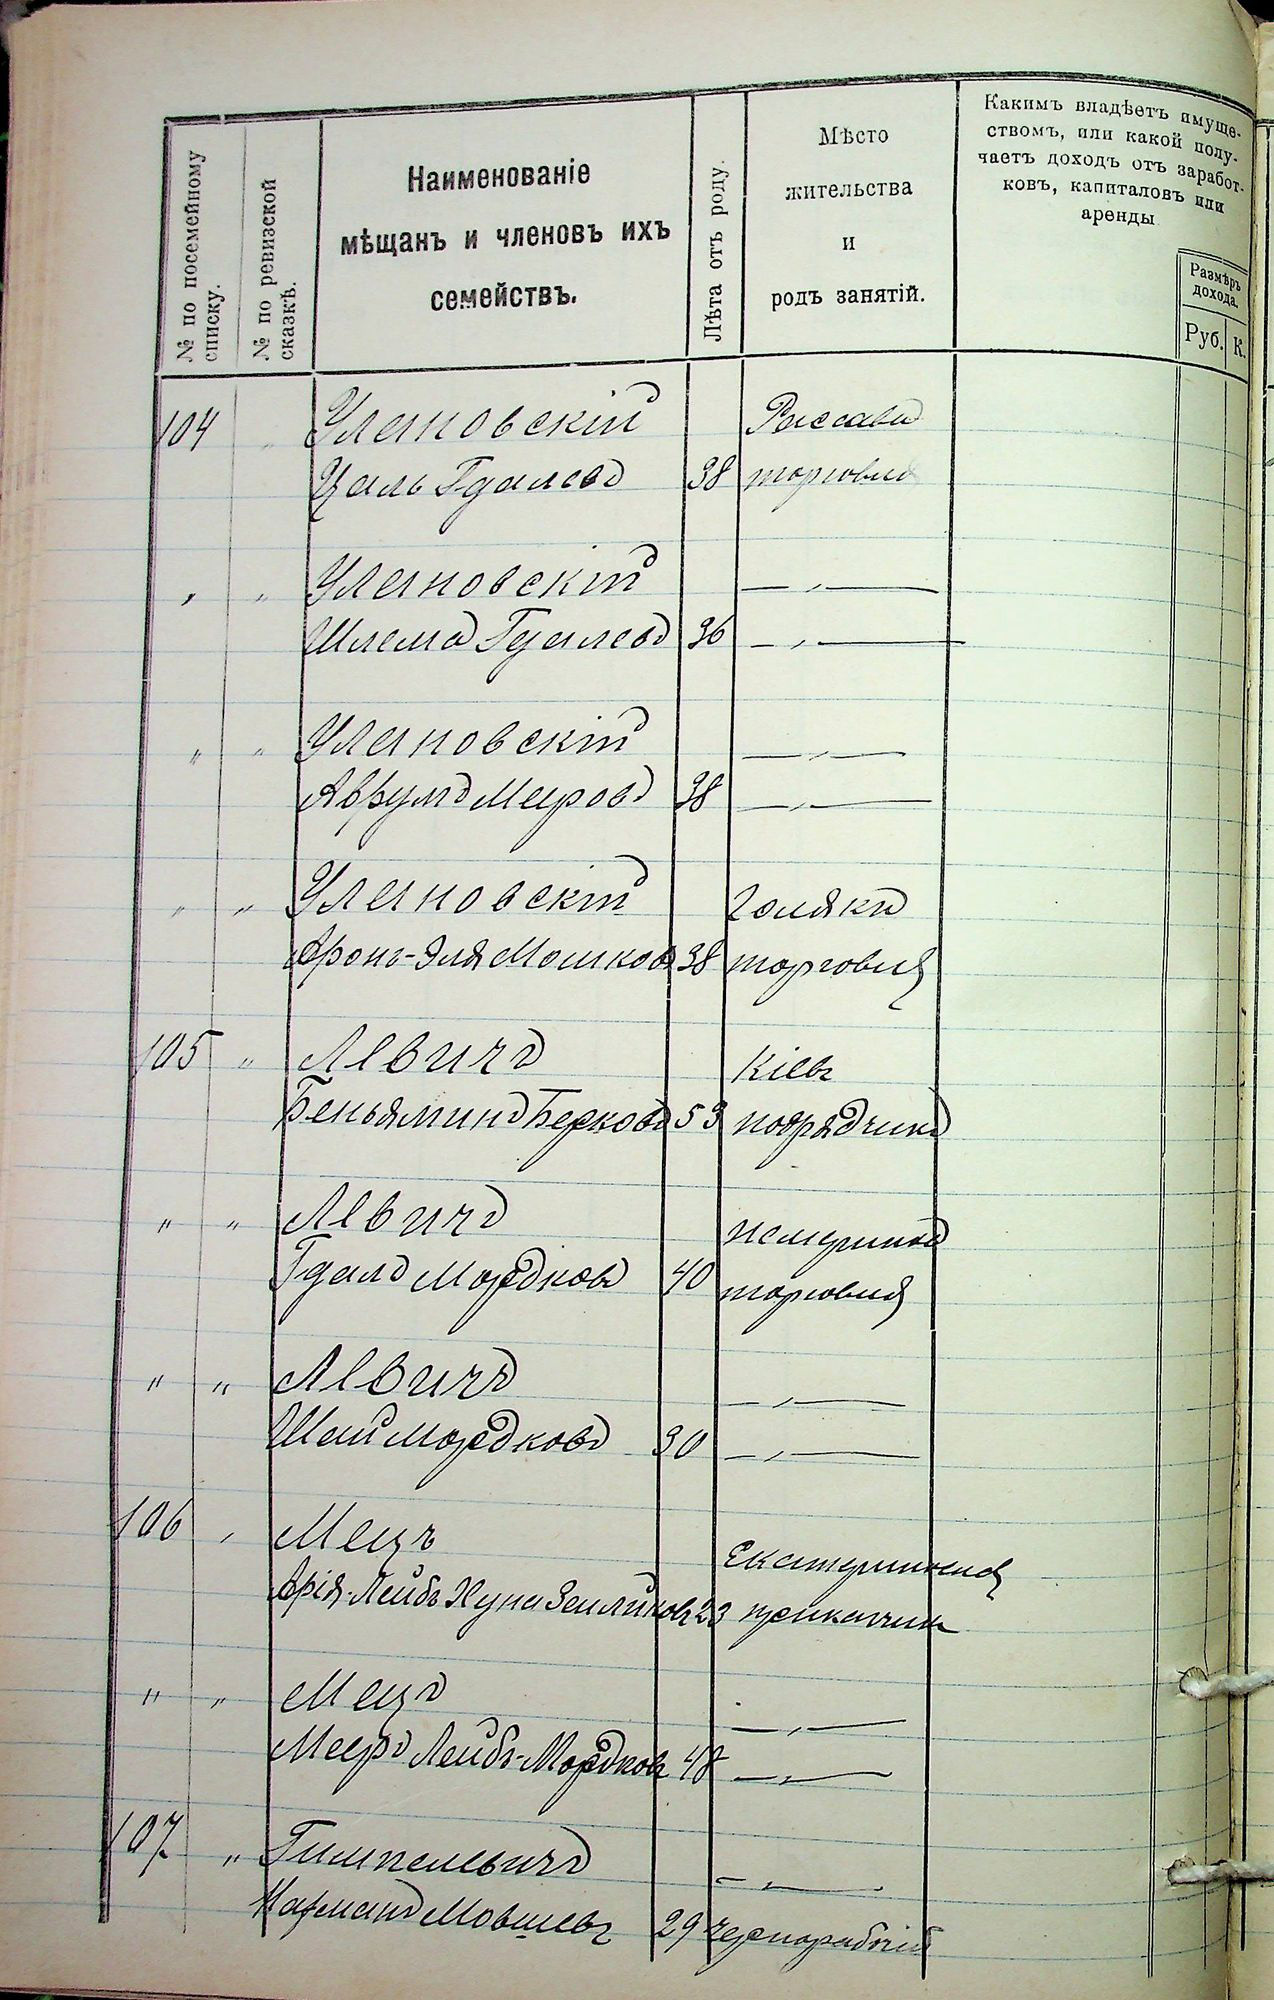 № по посемейному
списку.
№ по ревизской
сказкѣ.
Наименованіе
мѣщанъ и членовъ ихъ
семействъ.
Лѣта отъ роду.
Мѣсто
жительства
и
родъ занятій.
Какимъ владѣетъ имуще-
ствомъ, или какой полу-
чаетъ доходъ отъ заработ-
ковъ, капиталовъ или
аренды
Размѣръ
дохода.
Руб. К.
104 " Улановскій Россава
Цаль Гдалевъ 38 торговля
" " Улановскій — " —
Шлема Гдалевъ 36 — " —
" " Улановскій — " —
Аврумъ Меировъ 38 — " —
" " Улановскій Голяки
Аронъ-Эля Мошковъ 38 торговля
105 " Левичъ Кіевъ
Беньяминъ Берковъ 53 подрядчикъ
" " Левичъ
Гдалъ Мордковъ 40 торговля
" " Левичъ — " —
Шая Мордковъ 30 — " —
106 " Мецъ
Арія-Лейбъ Хуна 23 прикащикъ
" " Мецъ — " —
Меиръ Лейбъ-Мордковъ 48 — " —
107 " Гимпелевичъ — " —
Мовшевъ 29 чернорабочій